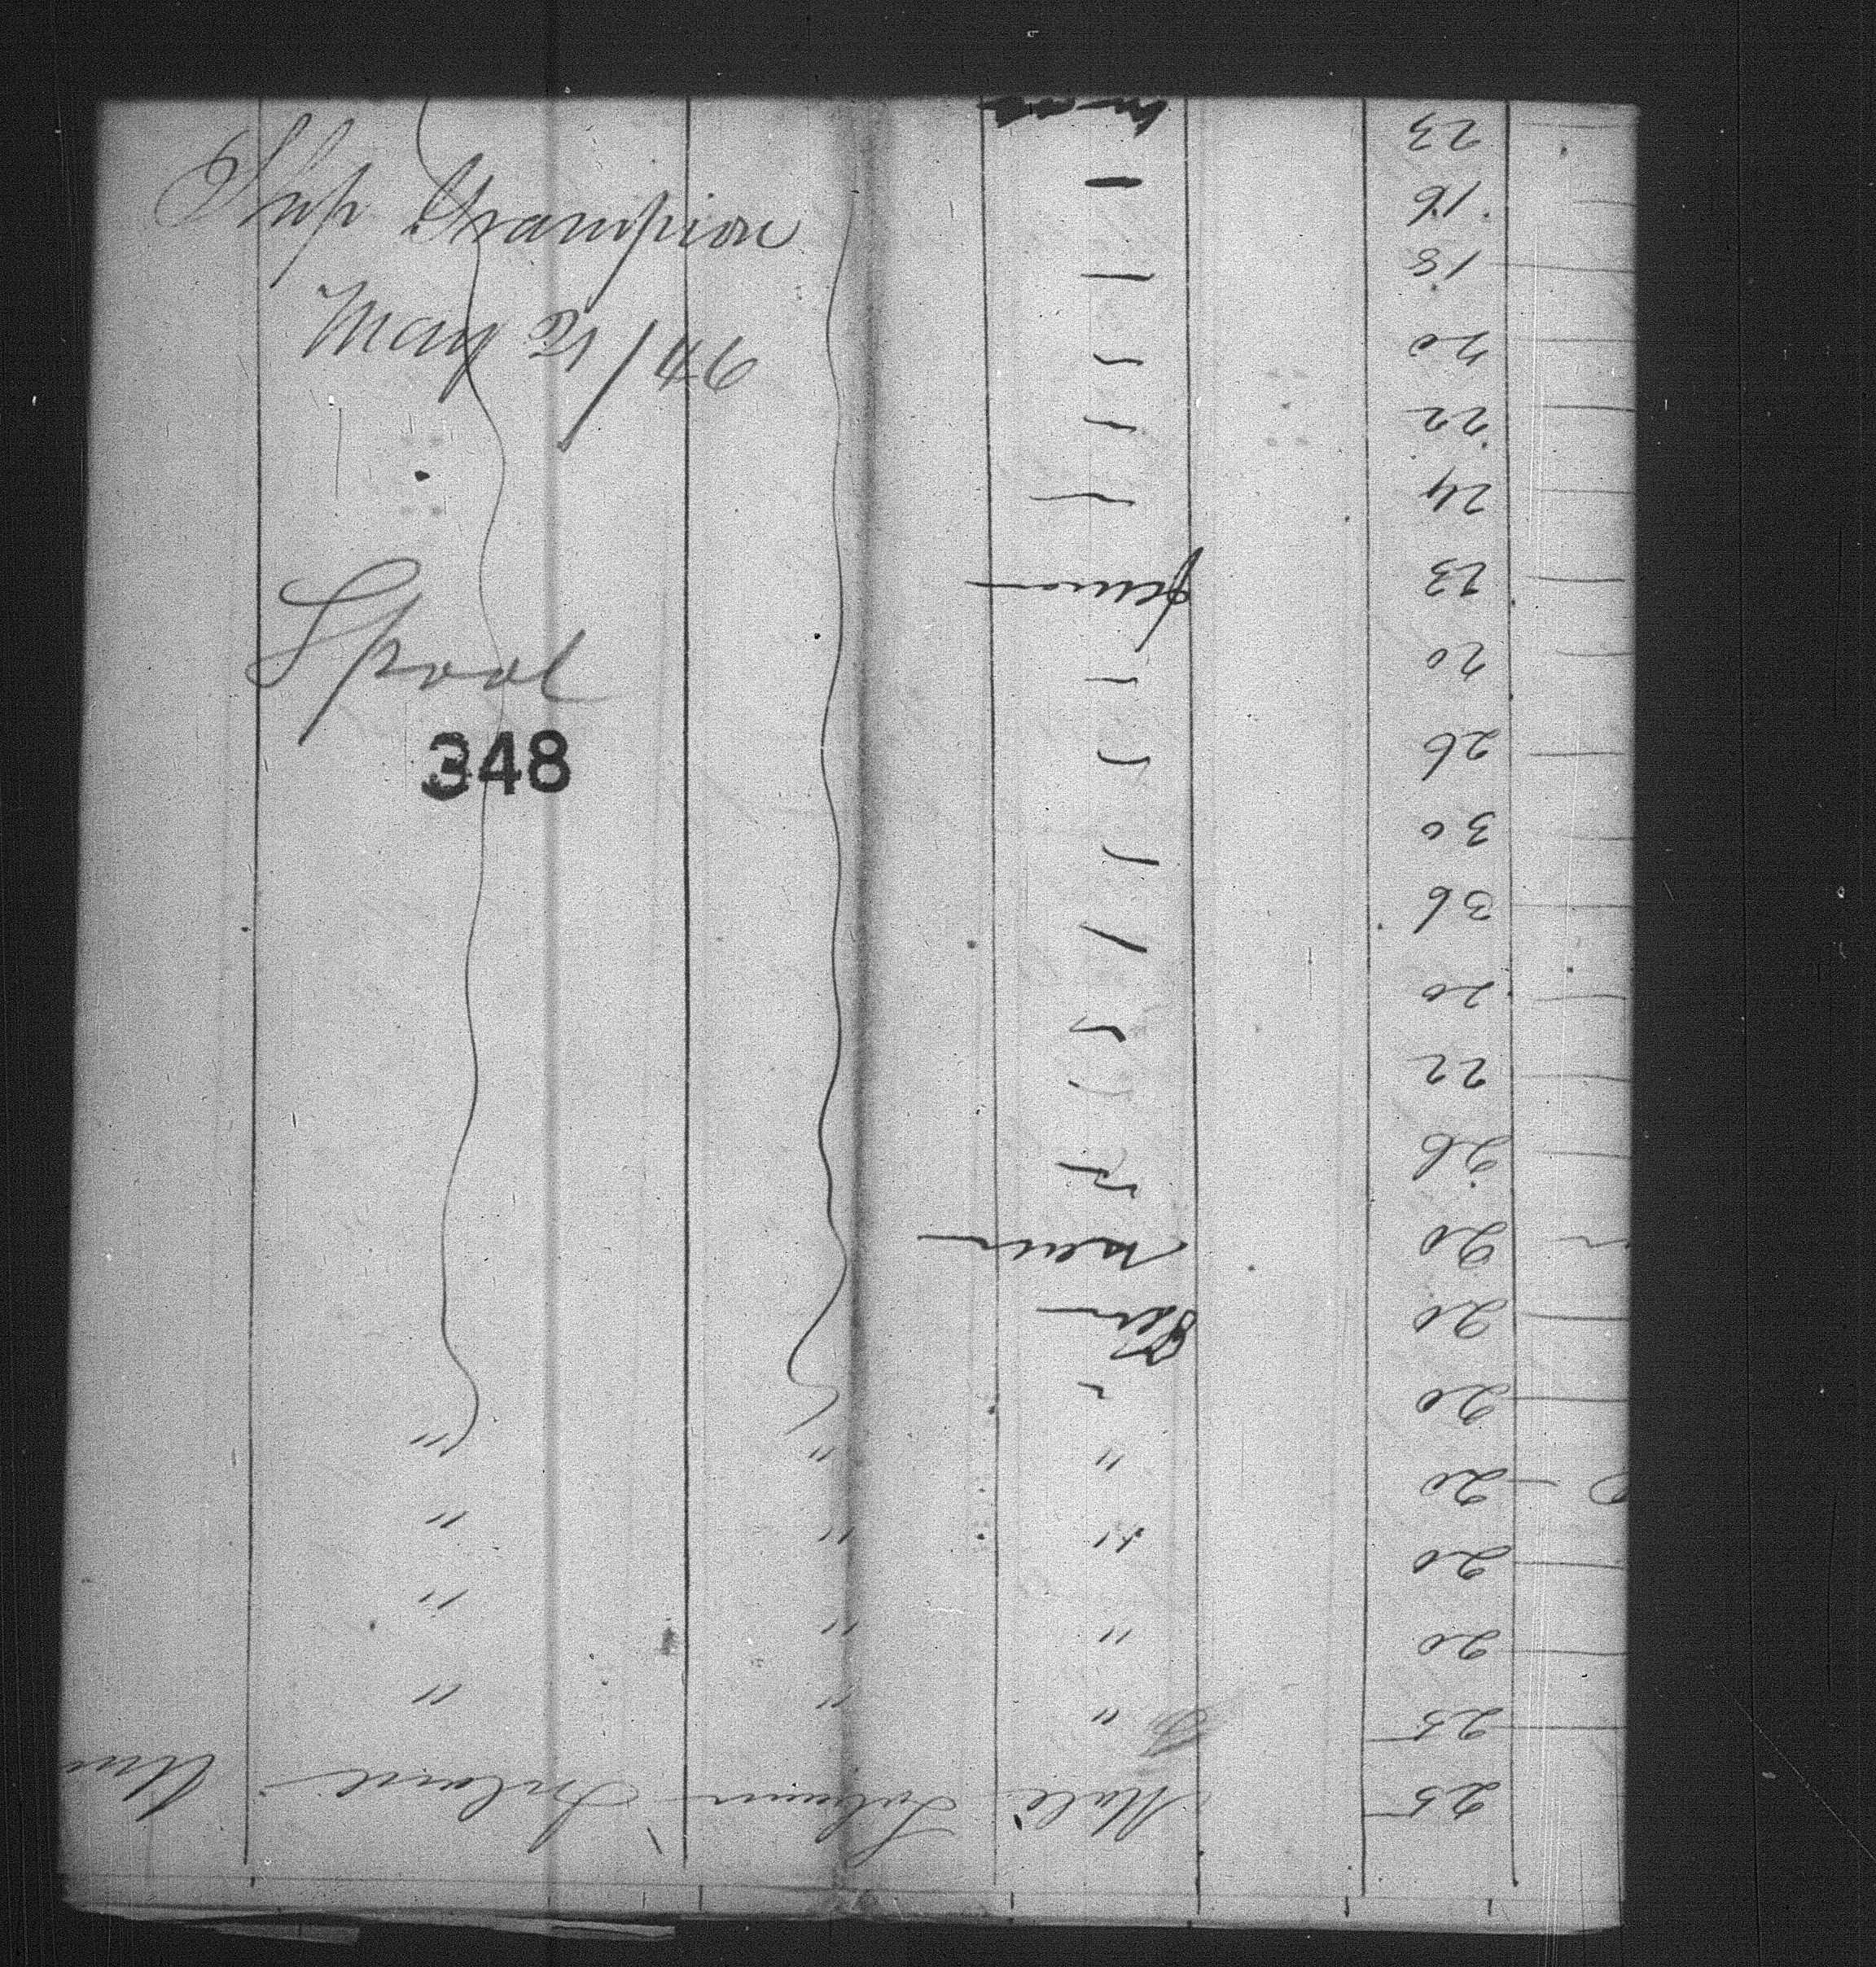 Ship Grampion
May 21/46
Lpool
348
25 Male Ireland
25 " " "
20 " " "
20 " " "
20 " " "
20 "
20 Fem
20
26
22
20
36
30
26
20
23 fem
24
22
20
18
16
23